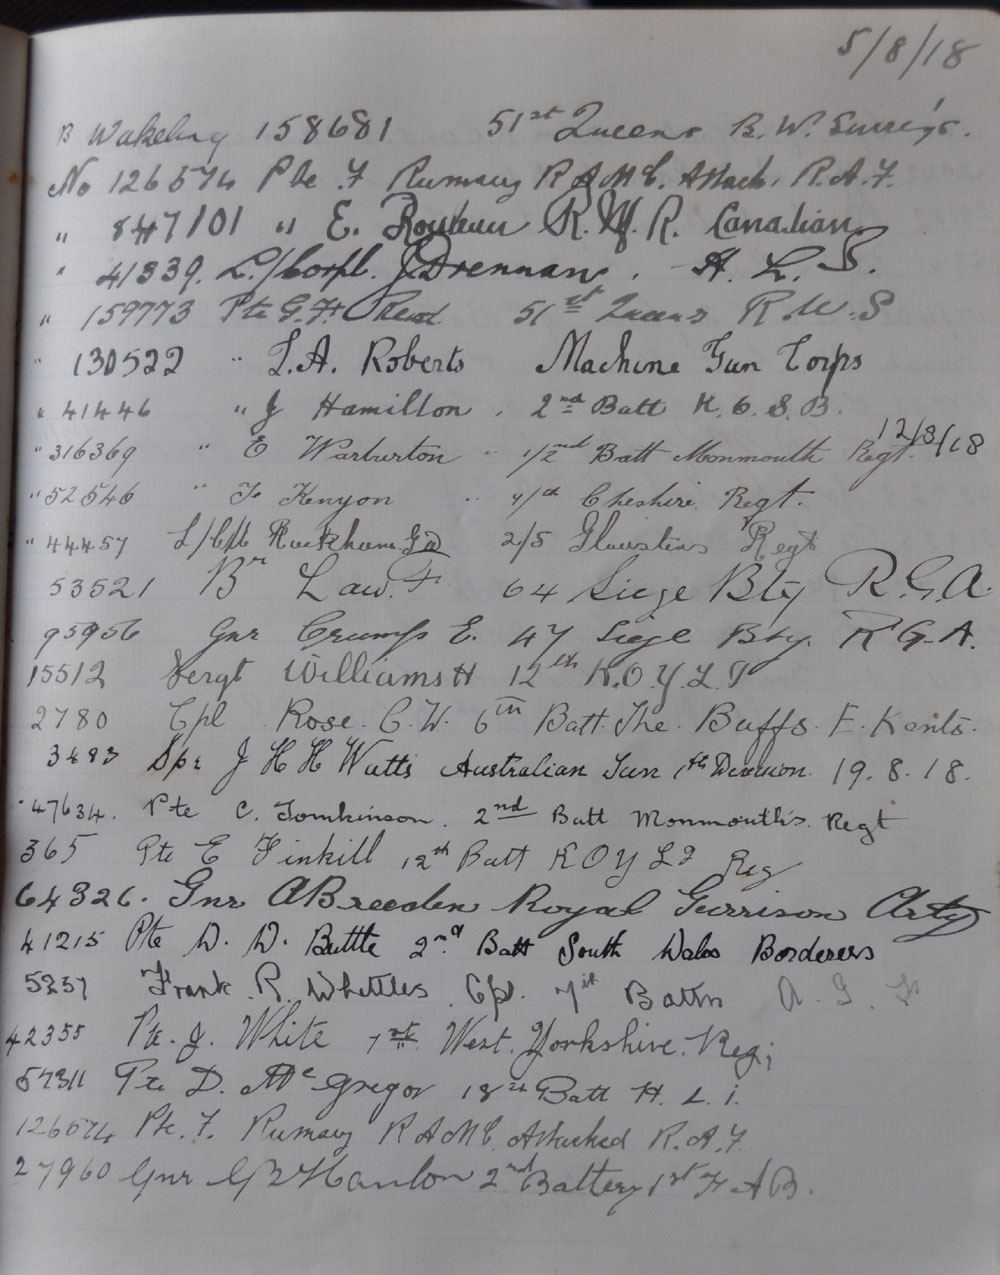 5/8/18
B Wakeling 158681 51st Queens R. W. Surreys.
No 126574 Pte F Rumsey R A M C. Attach. R.A.F.
" 847101 " E. Rouleau R. M. R. Canadian
" 41339. L./Corpl. J Drennan. H. L. I.
" 159773 Pte G. H. Read 51st Queens R.W.S
" 130522 " L.A. Roberts Machine Gun Corps
" 41446 " J Hamilton. 2nd Batt K.O.S.B.
12/8/18
" 316369 " E Warburton " 1/2nd Batt Monmouth Regt.
" 52546 " F Kenyon " 4/th Cheshire Regt.
" 44457 L/Cpl Rackham 2/5 Glousters Regt
53521 Br Law. F 64 Siege Bty R.G.A.
95956 Gnr Crump E. 47 Siege Bty. R G.A.
15512 Sergt Williams H 12th K.O.Y.L.I
2780 Cpl Rose. C.W. 6th Batt. The. Buffs. E. Kents.
3483 Spr J H H Watts Australian Tun 1st Division. 19.8.18.
47634. Pte C. Tomkinson. 2nd Batt Monmouths. Regt
365 Pte E Finkill 12th Batt K O Y L I Reg
64326. Gnr A Breeden Royal Garrison Arty
41215 Pte W. D. Buttle 2nd Batt South Wales Borderers
5257 Frank. R. Whettles Cpl. 7th Battn A. I. F
42355 Pte. J. White 1st West. Yorkshire. Reg;
57311 Pte D. McGregor 18th Batt H. L. I.
126574 Pte. F. Rumsey R A M C Attached R.A.F.
27960 Gnr G B Hanlon 2nd Battery 1st F A B.